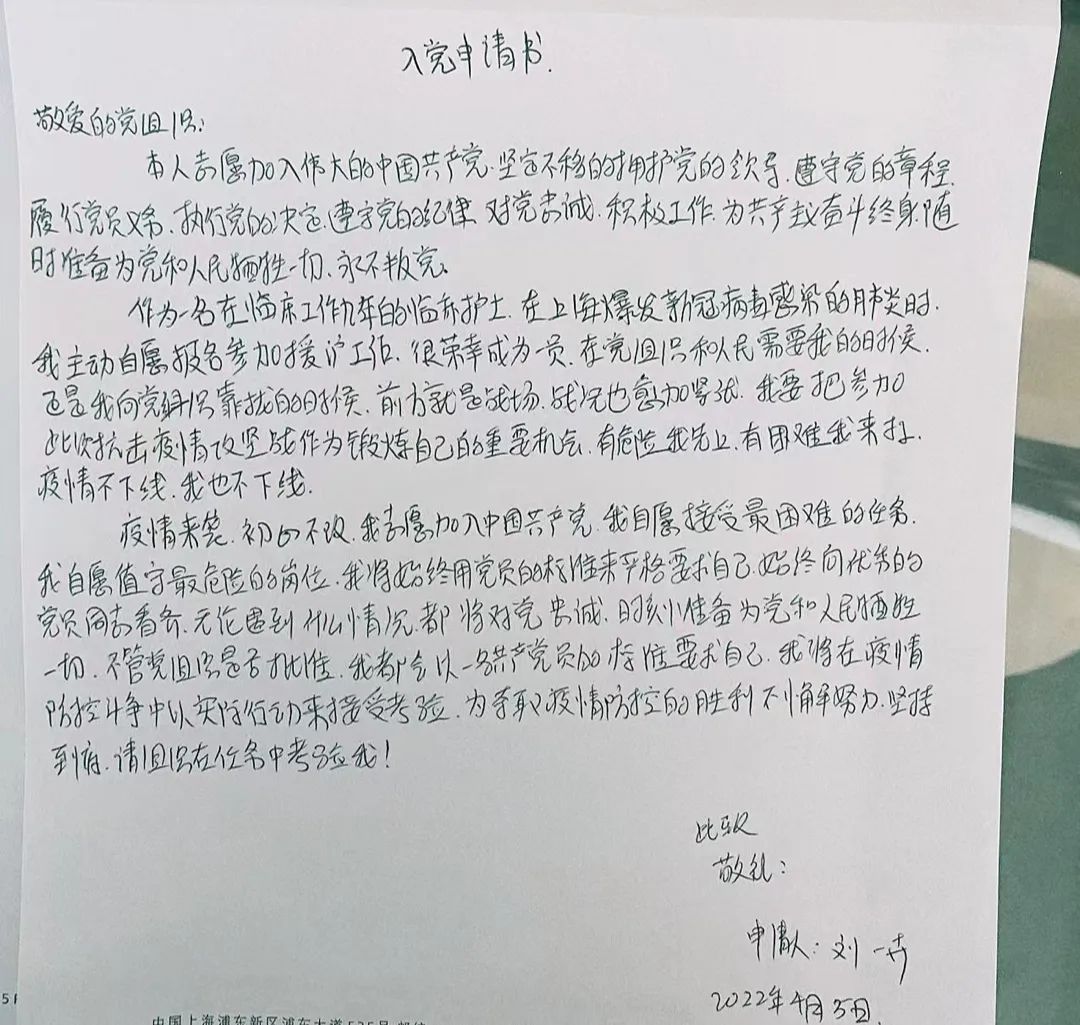 入党申请书.
敬爱的党组织:
本人志愿加入伟大的中国共产党.坚定不移的拥护党的领导.遵守党的章程.
履行党员义务.执行党的决定.遵守党的纪律 对党忠诚.积极工作 为共产主义奋斗终身.随
时准备为党和人民牺牲一切.永不叛党。
作为一名在临床工作九年的临床护士.在上海爆发新冠病毒感染的肺炎时.
我主动自愿报名参加援沪工作.很荣幸成为一员.在党组织和人民需要我的时候.
还是我向党组织靠拢的时候.前方就是战场.战况也愈加紧张.我要把参加
此次抗击疫情攻坚战作为锻炼自己的重要机会.有危险我先上.有困难我来扛.
疫情不下线.我也不下线.
疫情来袭.初心不改.我志愿加入中国共产党.我自愿接受最困难的任务.
我自愿值守最危险的岗位.我将始终用党员的标准来严格要求自己.始终向优秀的
党员同志看齐.无论遇到什么情况.都将对党忠诚.时刻准备为党和人民牺牲
一切.不管党组织是否批准.我都会以一名共产党员的标准要求自己.我将在疫情
防控斗争中以实际行动来接受考验.为夺取疫情防控的胜利不懈努力.坚持
到底.请组织在任务中考验我!
此致
敬礼:
申请人:刘一卉
2022年4月5日.
中国上海浦东新区浦东大道535号
5F